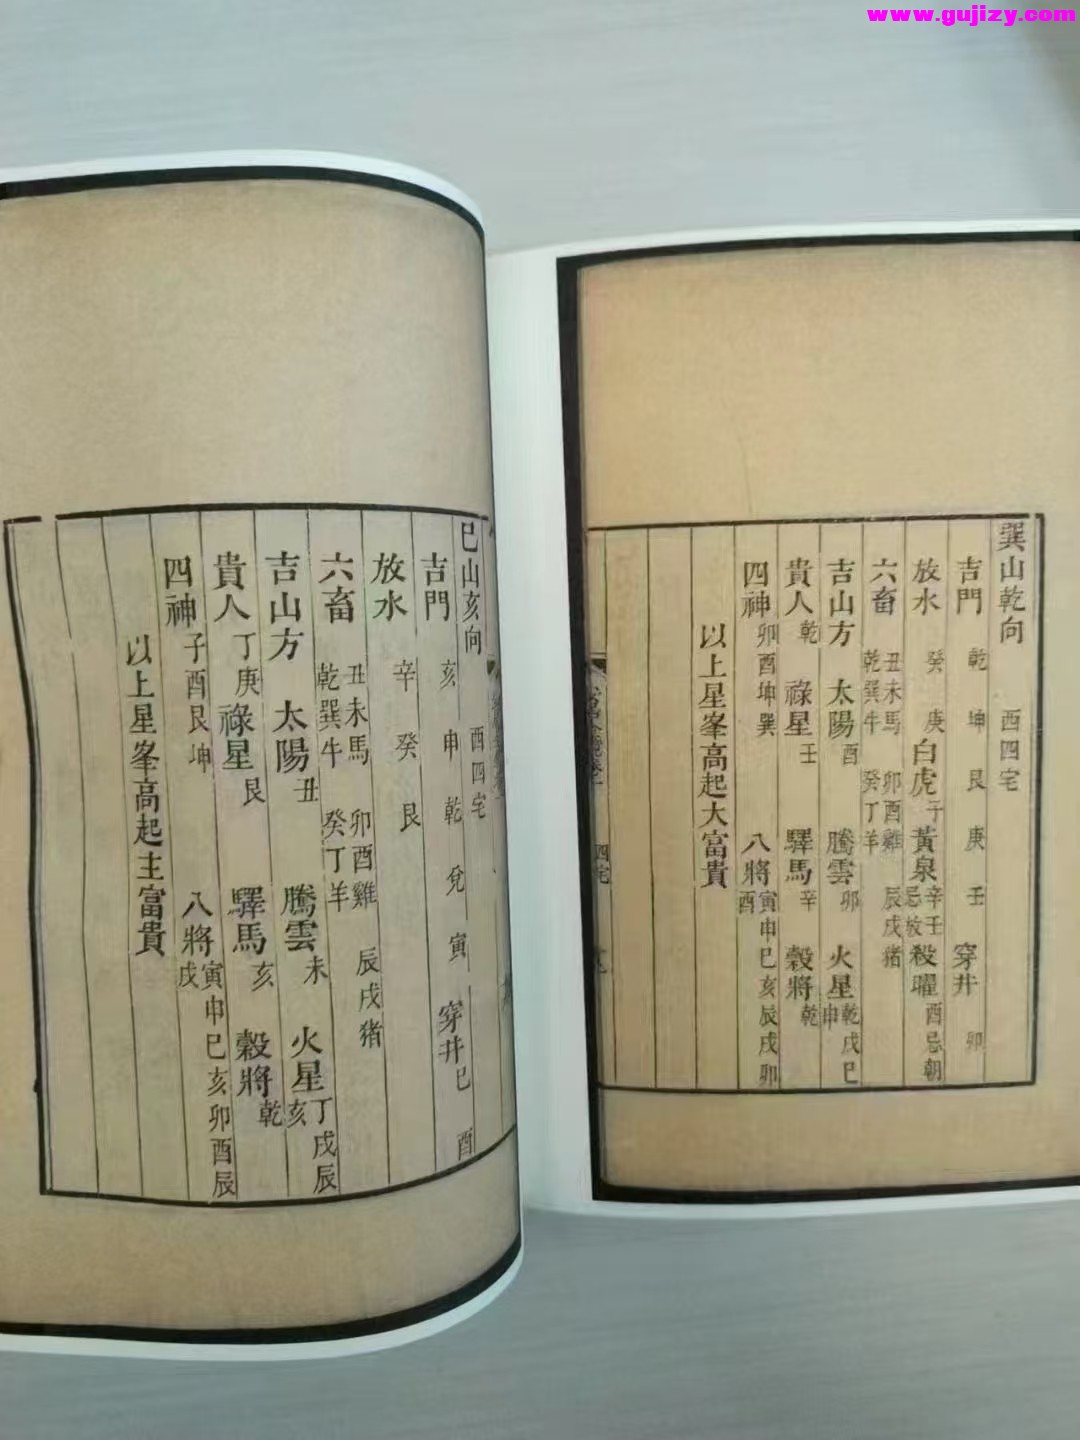 www.gujizy.com
巽山乾向 西四宅
吉門 乾 坤 艮 庚 壬 穿井 卯
放水 癸 庚 白虎 子 黃泉 辛壬忌放 殺曜 酉忌朝
六畜 丑未馬 乾巽牛 卯酉雞 癸丁羊 辰戌猪
吉山方 太陽 酉 騰雲 卯 火星 乾戌巳申
貴人 乾 祿星 壬 驛馬 辛 穀將 乾
四神 卯酉坤巽 八將 寅申巳亥辰戌卯酉
以上星峯高起大富貴
四宅
巳山亥向 酉四宅
吉門 亥 申 乾 兌 寅 穿井 巳 酉
放水 辛 癸 艮
六畜 丑未馬 乾巽牛 卯酉雞 癸丁羊 辰戌猪
吉山方 太陽 丑 騰雲 未 火星 丁戌辰亥
貴人 丁庚 祿星 艮 驛馬 亥 穀將 乾
四神 子酉艮坤 八將 寅申巳亥卯酉辰戌
以上星峯高起主富貴